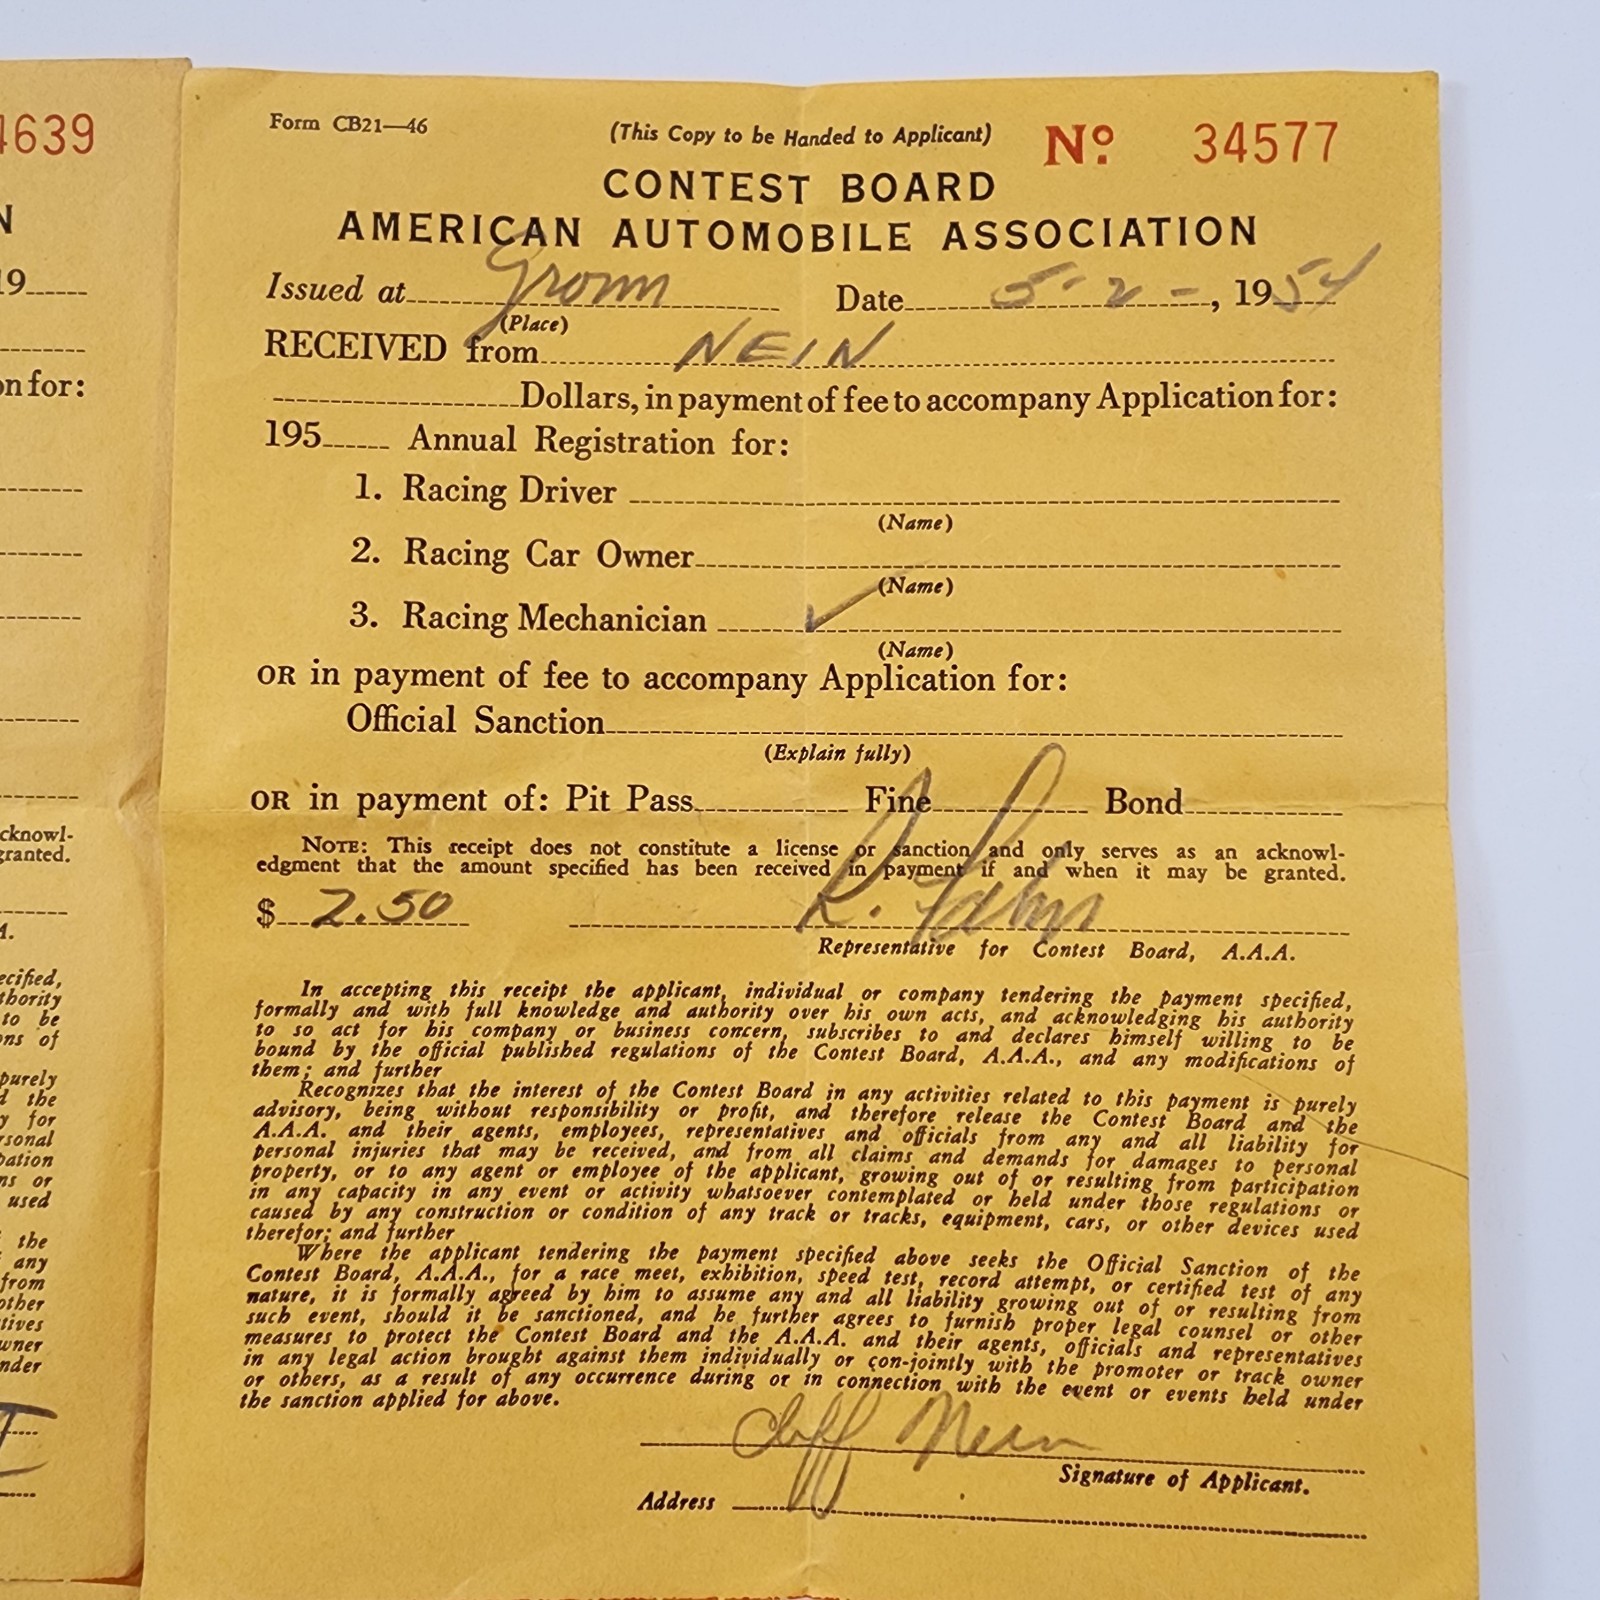 4639
N
19
on for:
acknowl-
granted.
A.
ecified,
thority
to be
ons of
purely
d the
y for
rsonal
pation
ns or
used
the
any
from
other
tives
wner
nder
Form CB21—46
(This Copy to be Handed to Applicant)
Nº 34577
CONTEST BOARD
AMERICAN AUTOMOBILE ASSOCIATION
Issued at Date 5-2-, 1954
(Place)
RECEIVED from NEIN
Dollars, in payment of fee to accompany Application for:
195 Annual Registration for:
1. Racing Driver
(Name)
2. Racing Car Owner
(Name)
3. Racing Mechanician ✓
(Name)
OR in payment of fee to accompany Application for:
Official Sanction
(Explain fully)
OR in payment of: Pit Pass Fine Bond
NOTE: This receipt does not constitute a license or sanction and only serves as an acknowl-
edgment that the amount specified has been received in payment if and when it may be granted.
$ 2.50 R.
Representative for Contest Board, A.A.A.
In accepting this receipt the applicant, individual or company tendering the payment specified,
formally and with full knowledge and authority over his own acts, and acknowledging his authority
to so act for his company or business concern, subscribes to and declares himself willing to be
bound by the official published regulations of the Contest Board, A.A.A., and any modifications of
them; and further
Recognizes that the interest of the Contest Board in any activities related to this payment is purely
advisory, being without responsibility or profit, and therefore release the Contest Board and the
A.A.A. and their agents, employees, representatives and officials from any and all liability for
personal injuries that may be received, and from all claims and demands for damages to personal
property, or to any agent or employee of the applicant, growing out of or resulting from participation
in any capacity in any event or activity whatsoever contemplated or held under those regulations or
caused by any construction or condition of any track or tracks, equipment, cars, or other devices used
therefor; and further
Where the applicant tendering the payment specified above seeks the Official Sanction of the
Contest Board, A.A.A., for a race meet, exhibition, speed test, record attempt, or certified test of any
nature, it is formally agreed by him to assume any and all liability growing out of or resulting from
such event, should it be sanctioned, and he further agrees to furnish proper legal counsel or other
measures to protect the Contest Board and the A.A.A. and their agents, officials and representatives
in any legal action brought against them individually or con-jointly with the promoter or track owner
or others, as a result of any occurrence during or in connection with the event or events held under
the sanction applied for above.
Cliff Nein
Signature of Applicant.
Address